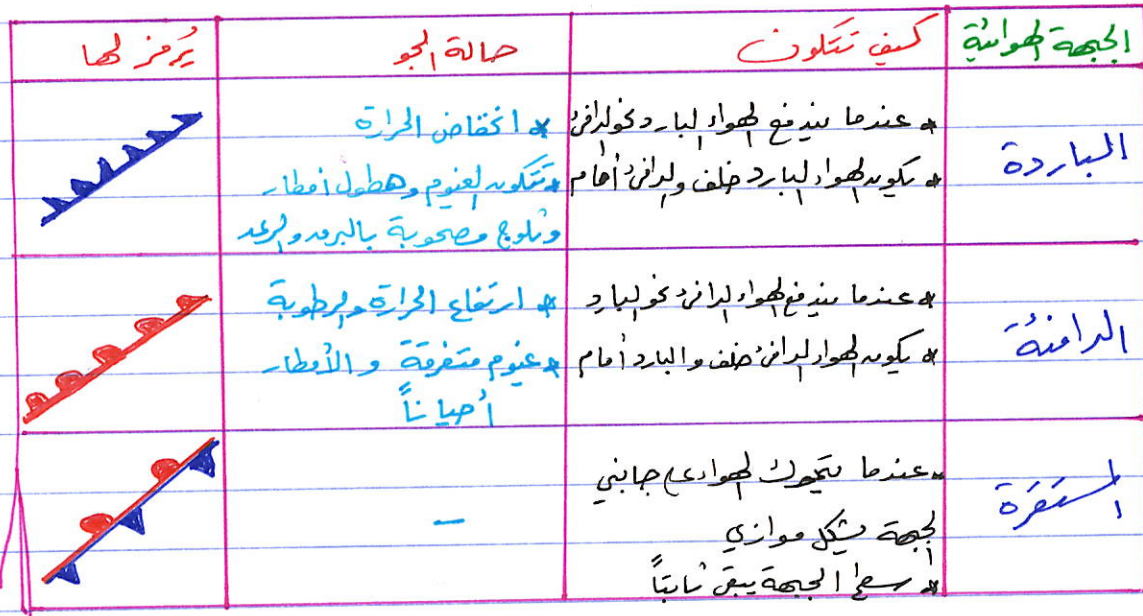 الجبهة الهوائية
كيف تتكون
حالة الجو
يُرمز لها
الباردة
* عندما يندفع الهواء البارد نحو الدافئ
* يكون الهواء البارد خلف والدافئ أمام
* انخفاض الحرارة
* تتكون الغيوم وهطول أمطار
وثلوج مصحوبة بالبرق والرعد
الدافئة
* عندما يندفع الهواء الدافئ نحو البارد
* يكون الهواء الدافئ خلف والبارد أمام
* ارتفاع الحرارة والرطوبة
* غيوم متفرقة والأمطار
أحياناً
المستقرة
* عندما يتحرك الهواء على جانبي
الجبهة بشكل موازي
* سطح الجبهة يبقى ثابتاً
-